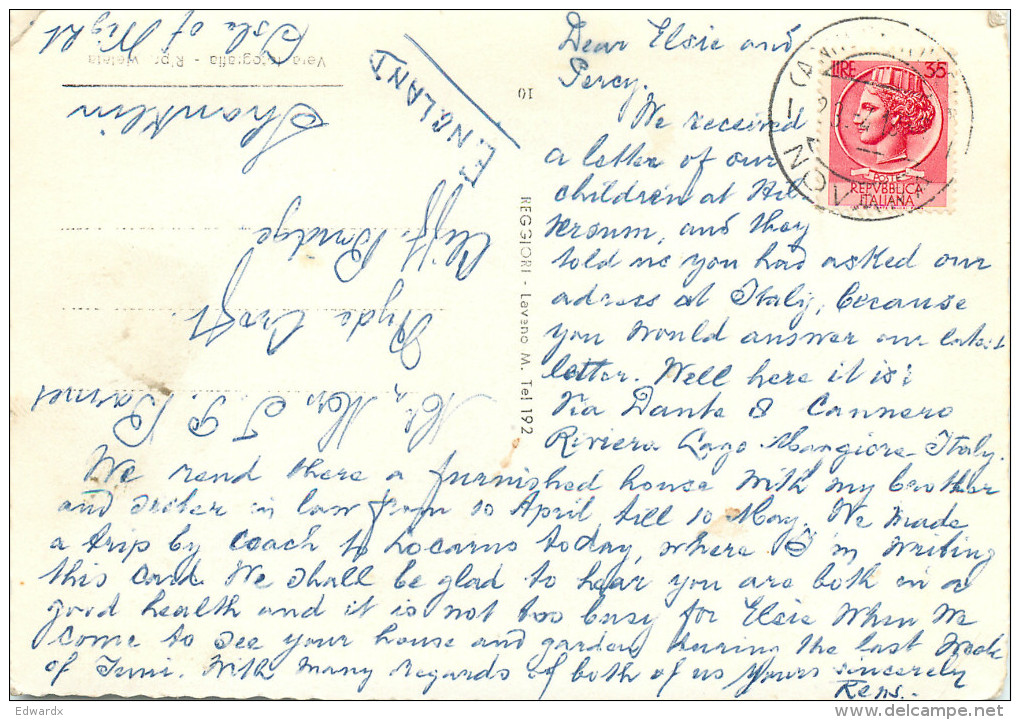 Dear Elsie and
Percy.
We received
a letter of our
children at Hil
versum, and they
told me you had asked our
adress at Italy, because
you would answer our latest
letter. Well here it is:
Via Dante 8 Cannero
Riviera Lago Mangiore Italy.
We rend there a furnished house with my brother
and sister in law from 10 April till 10 May. We made
a trip by coach to Locarno today, where I'm writing
this card. We shall be glad to hear you are both in a
good health and it is not too busy for Elsie when we
come to see your house and garden during the last week
of Juni. With many regards of both of us yours sincerely
Rens.-
Mr, Mrs J P Barnes
Ryde Croft
Cliff Bridge
Shanklin
Isle of Wight
ENGLAND
Vera fotografia - Ripr. vietata
10
REGGIORI - Laveno M. Tel 192
LIRE 35
POSTE
REPVBBLICA
ITALIANA
Edwardx
http://www.delcampe.net